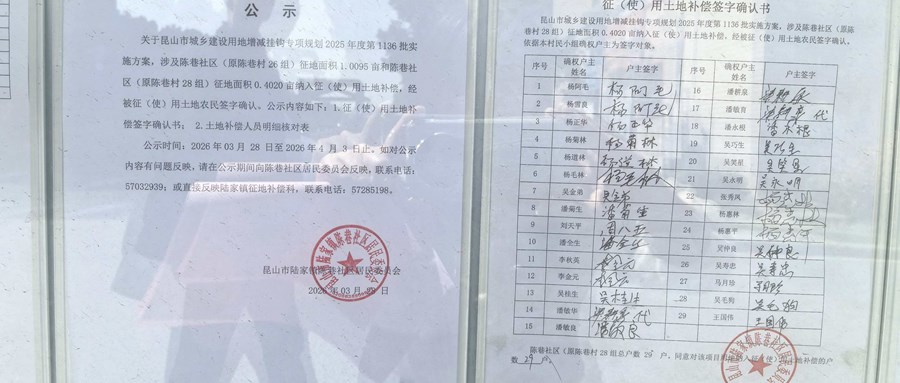 公 示
关于昆山市城乡建设用地增减挂钩专项规划 2025 年度第 1136 批实
施方案,涉及陈巷社区(原陈巷村 26 组)征地面积 1.0095 亩和陈巷社
区(原陈巷村 28 组)征地面积 0.4020 亩纳入征(使)用土地补偿,经
被征(使)用土地农民签字确认。公示内容如下:1.征(使)用土地补
偿签字确认书; 2.土地补偿人员明细核对表
公示时间:2026 年 03 月 28 日至 2026 年 4 月 3 日止。如对公示
内容有问题反映,请在公示期间向陈巷社区居民委员会反映,联系电话:
57032939;或直接反映陆家镇征地补偿科,联系电话:57285198.
昆山市陆家镇陈巷社区居民委员会
2026 年 03 月 28 日
征(使)用土地补偿签字确认书
昆山市城乡建设用地增减挂钩专项规划 2025 年度第 1136 批实施方案,涉及陈巷社区(原陈
巷村 28 组)征地面积 0.4020 亩纳入征(使)用土地补偿、经被征(使)用土地农民签字确认。
依据本村民小组确权户主为签字对象。
序号 确权户主姓名 户主签字 序号 确权户主姓名 户主签字
1 杨阿毛 杨阿毛 16 潘耕泉
2 杨雪良 17 潘敏育 代
3 杨正华 杨正华 18 潘永根 潘永根
4 杨菊林 杨菊林 19 吴巧生 吴巧生
5 杨道林 杨道林 20 吴笑星
6 杨毛林 21 吴永明 吴永明
7 吴金弟 22 张秀凤
8 潘菊生 潘菊生 23 杨惠林
9 刘天平 24 杨惠平
10 潘全生 25 吴仲良 吴仲良
11 李秋英 26 吴寿忠
12 李金元 27 马月珍
13 吴桂生 28 吴毛狗 吴毛狗
14 潘敏华 代 29 王国伟 王国伟
15 潘敏良 潘敏良
陈巷社区(原陈巷村 28 组总户数 29 户,同意对该项目
数 29 户。